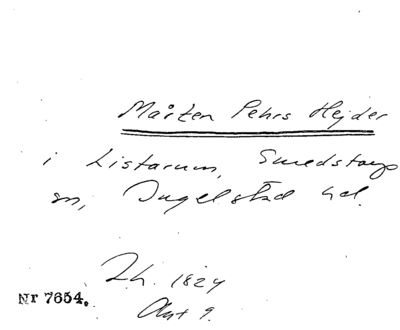 Mårten Pehrs Hejder
i Listarum, Smedstorps
sn, Ingelstad hd.
Lh. 1824
Nr 7654.
Okt 9.